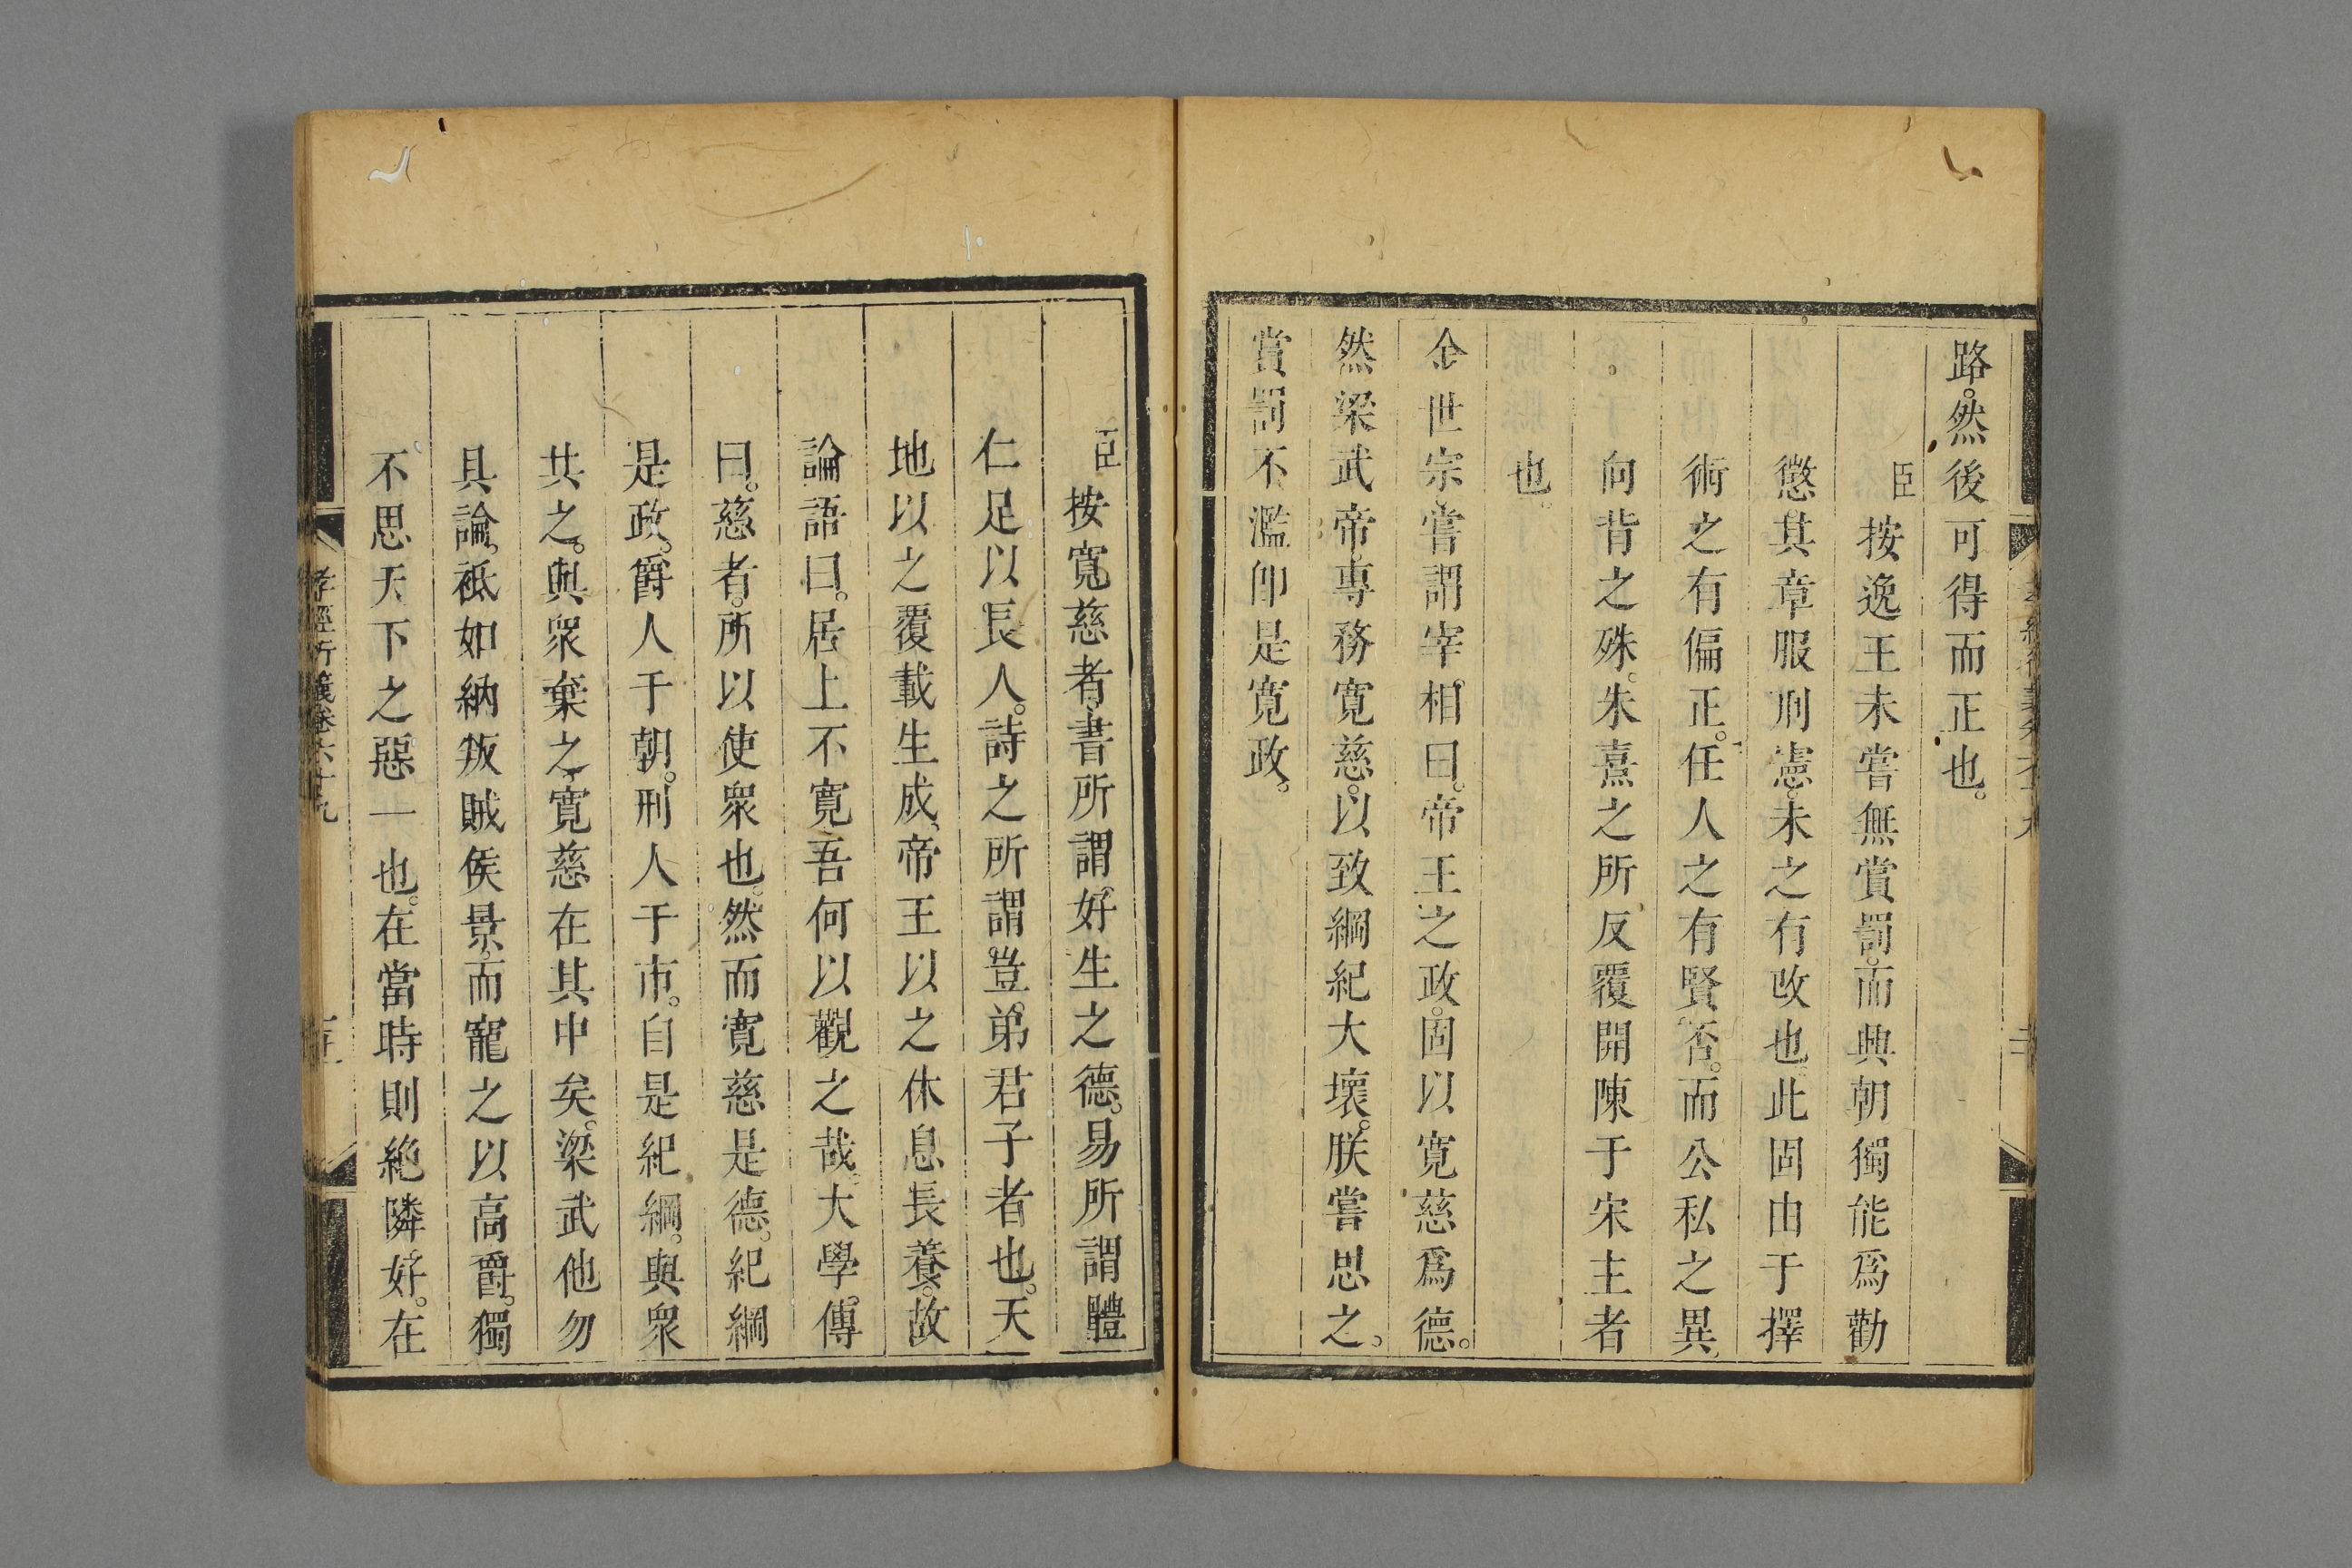 路。然後可得而正也。
臣按逸王未嘗無賞罰。而典朝獨能爲勸
懲。其章服刑憲。未之有改也。此固由于擇
術之有偏正。任人之有賢否。而公私之異。
向背之殊。朱熹之所反覆開陳于宋主者
也。
金世宗嘗謂宰相曰。帝王之政。固以寛慈爲德。
然梁武帝專務寛慈。以致綱紀大壞。朕嘗思之。
賞罰不濫卽是寛政。
臣按寛慈者。書所謂好生之德。易所謂體
仁足以長人。詩之所謂豈弟君子者也。天
地以之覆載生成。帝王以之休息長養。故
論語曰。居上不寛。吾何以觀之哉。大學傳
曰。慈者。所以使衆也。然而寛慈是德。紀綱
是政。爵人于朝。刑人于市。自是紀綱。與衆
共之。與衆棄之。寛慈在其中矣。梁武他勿
具論。祗如納叛賊侯景。而寵之以高爵。獨
不思天下之惡一也。在當時則絶隣好。在
孝經衍義卷六十九